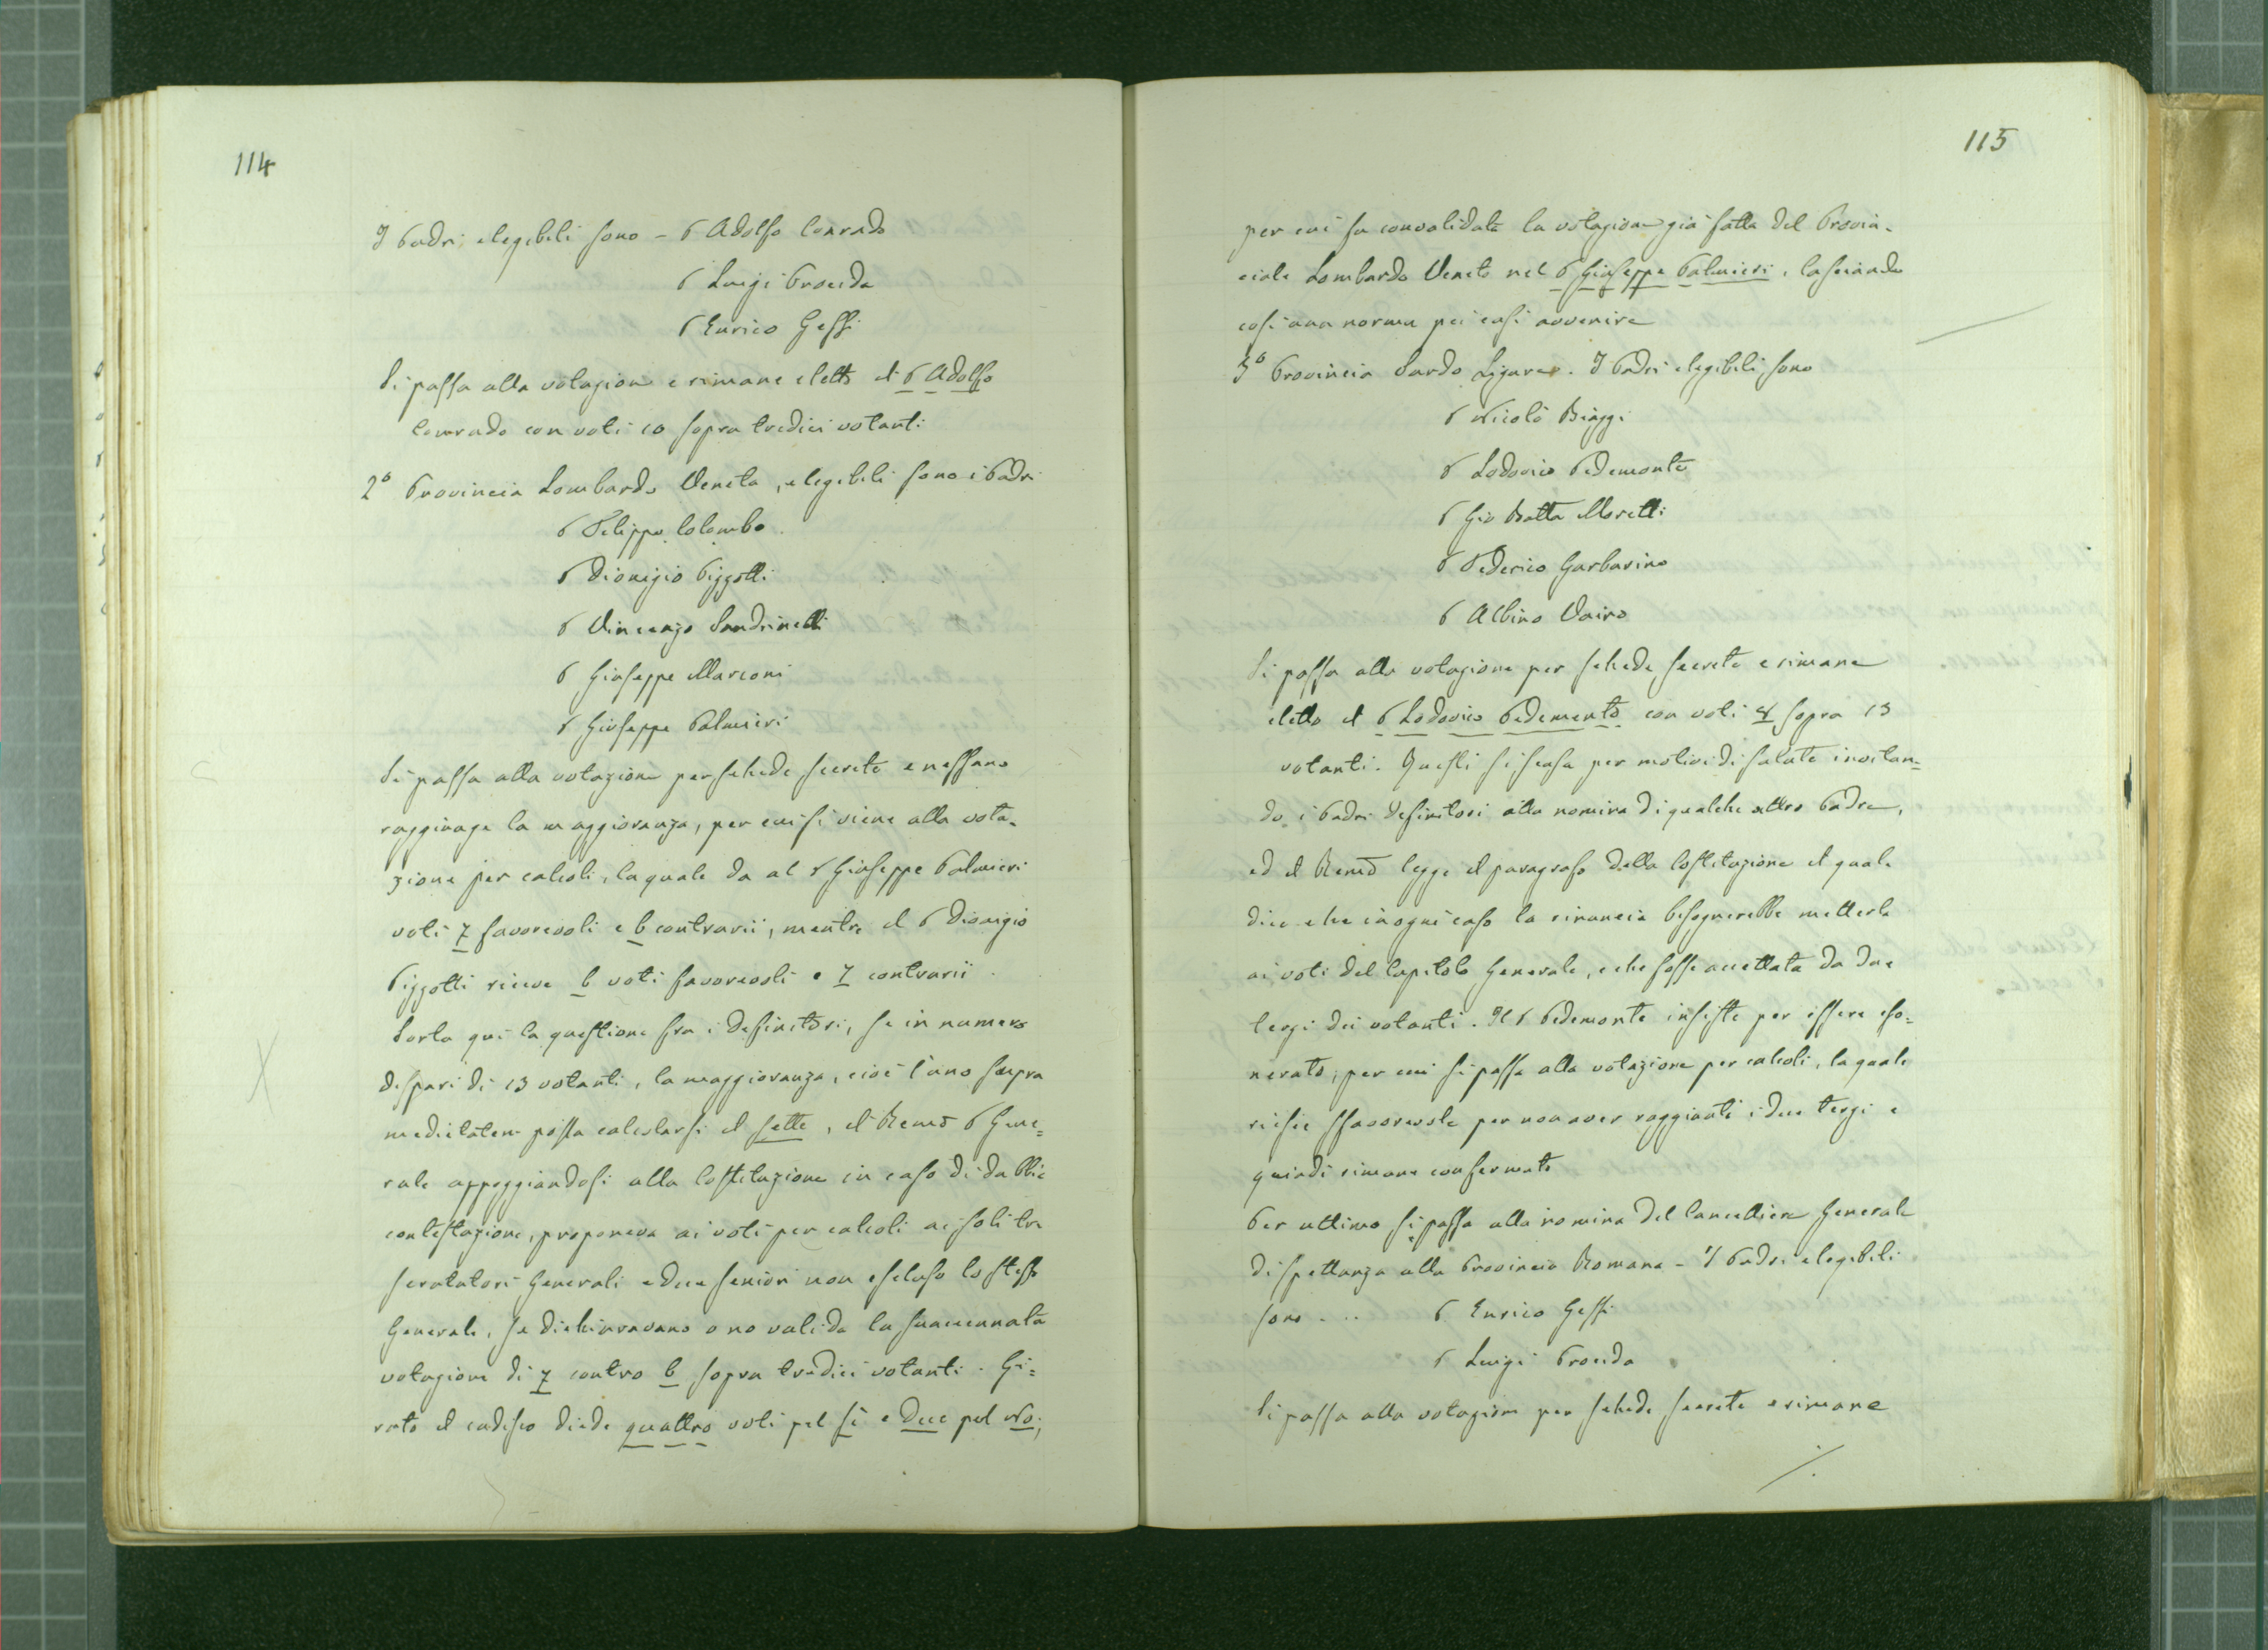 114
I Padri elegibili sono - P Adolfo Conrado
P Luigi Procida
P Enrico Gessi
Si passa alla votazione e rimane eletto il P Adolfo
Conrado con voti 10 sopra tredici votanti
2º Provincia Lombardo Veneta, elegibili sono i Padri
P Filippo Colombo
P Dionigio Pizzotti
P Vincenzo Sandrinelli
P Giuseppe Marconi
P Giuseppe Palmieri
Si passa alla votazione per schede secrete e nessuno
raggiunge la maggioranza, per cui si viene alla vota-
zione per calcoli, la quale da al P Giuseppe Palmieri
voti 7 favorevoli e 6 contrarii, mentre il P Dionigio
Pizzotti riceve 6 voti favorevoli e 7 contrarii.
Sorta qui la questione fra i Definitori, se in numero
dispari di 13 votanti, la maggioranza, cioè l'uno supra
medietatem possa calcolarsi il sette, il Remo P Gene=
rale appoggiandosi alla Costituzione in caso di dubbie
contestazione, proponeva ai voti per calcoli ai soli tre
scrutatori Generali e due seniori non escluso lo stesso
Generale, se dichiaravano o no valida la suaccennata
votazione di 7 contro 6 sopra tredici votanti. Gi=
rato il cadisco diede quattro voti pel sì e due pel No;
115
per cui fu convalidata la votazione già fatta del Provin-
ciale Lombardo Veneto nel P Giuseppe Palmieri, lasciando
così una norma pei casi avvenire
3º Provincia Sardo Ligure. I Padri elegibili sono
P Nicolò Biaggi
P Lodovico Pedemonte
P Gio Batta Moretti
P Federico Garbarino
P Albino Vairo
Si passa alla votazione per schede secrete e rimane
eletto il P Lodovico Pedemonte con voti 8 sopra 13
votanti. Questi si scusa per motivi di salute invitan=
do i Padri Definitori alla nomina di qualche altro Padre,
ed il Remo legge il paragrafo della Costituzione il quale
dice che in ogni caso la rinuncia bisognerebbe metterla
ai voti del Capitolo Generale, e che fosse accettata da due
terzi dei votanti. Il P Pedemonte insiste per essere eso=
nerato, per cui si passa alla votazione per calcoli, la quale
riesce sfavorevole per non aver raggiunti i due terzi e
quindi rimane confermato
Per ultimo si passa alla nomina del Cancelliere Generale
di spettanza alla Provincia Romana - I Padri elegibili
sono ... P Enrico Gessi
P Luigi Procida
Si passa alla votazione per schede secrete e rimane